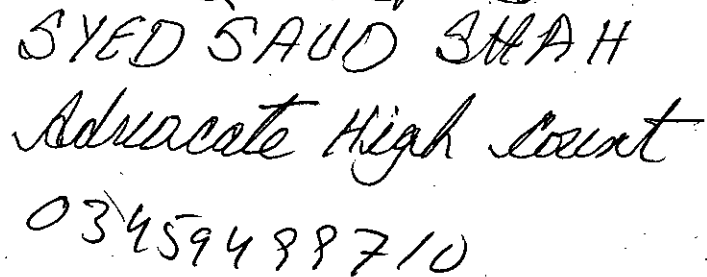 SYED SAUD SHAH
Advocate High Court
03459499710